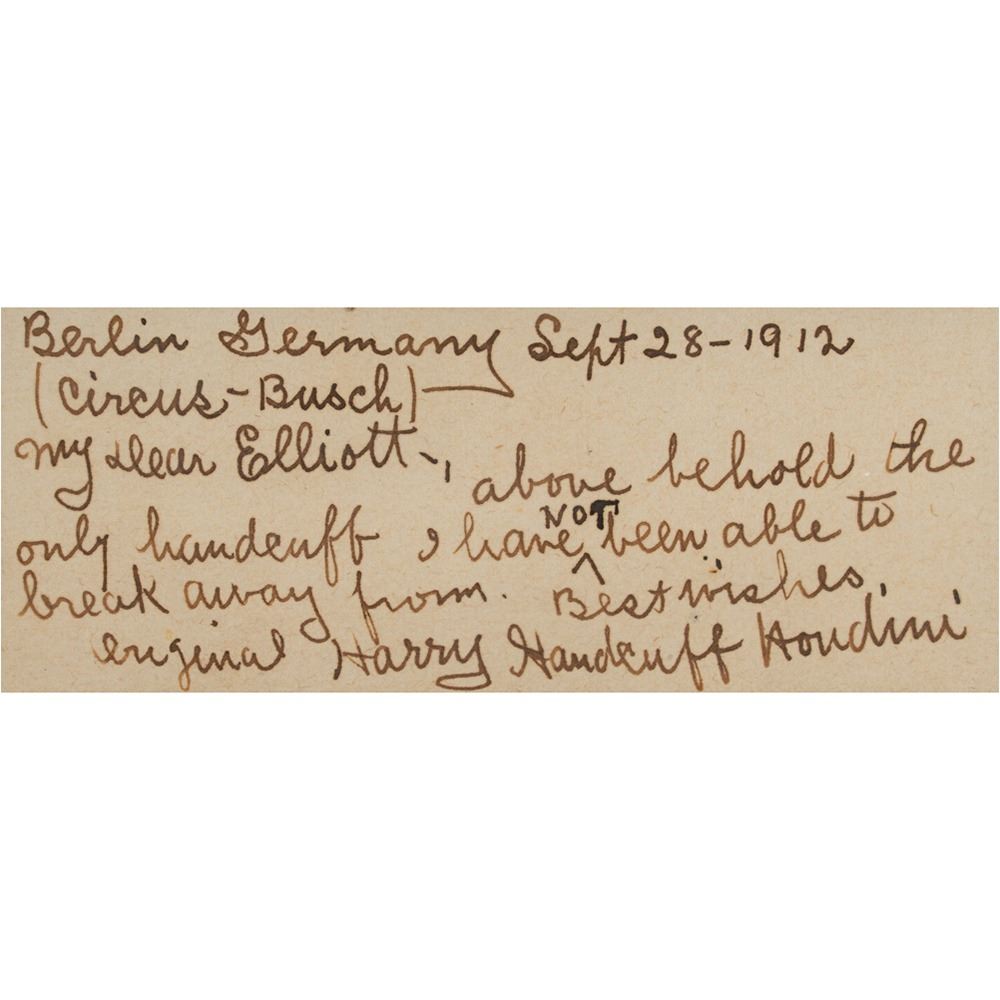 Berlin Germany Sept 28-1912
(Circus-Busch)
My Dear Elliott-, above behold the
only handcuff I have NOT been able to
break away from. Best wishes,
original Harry Handcuff Houdini